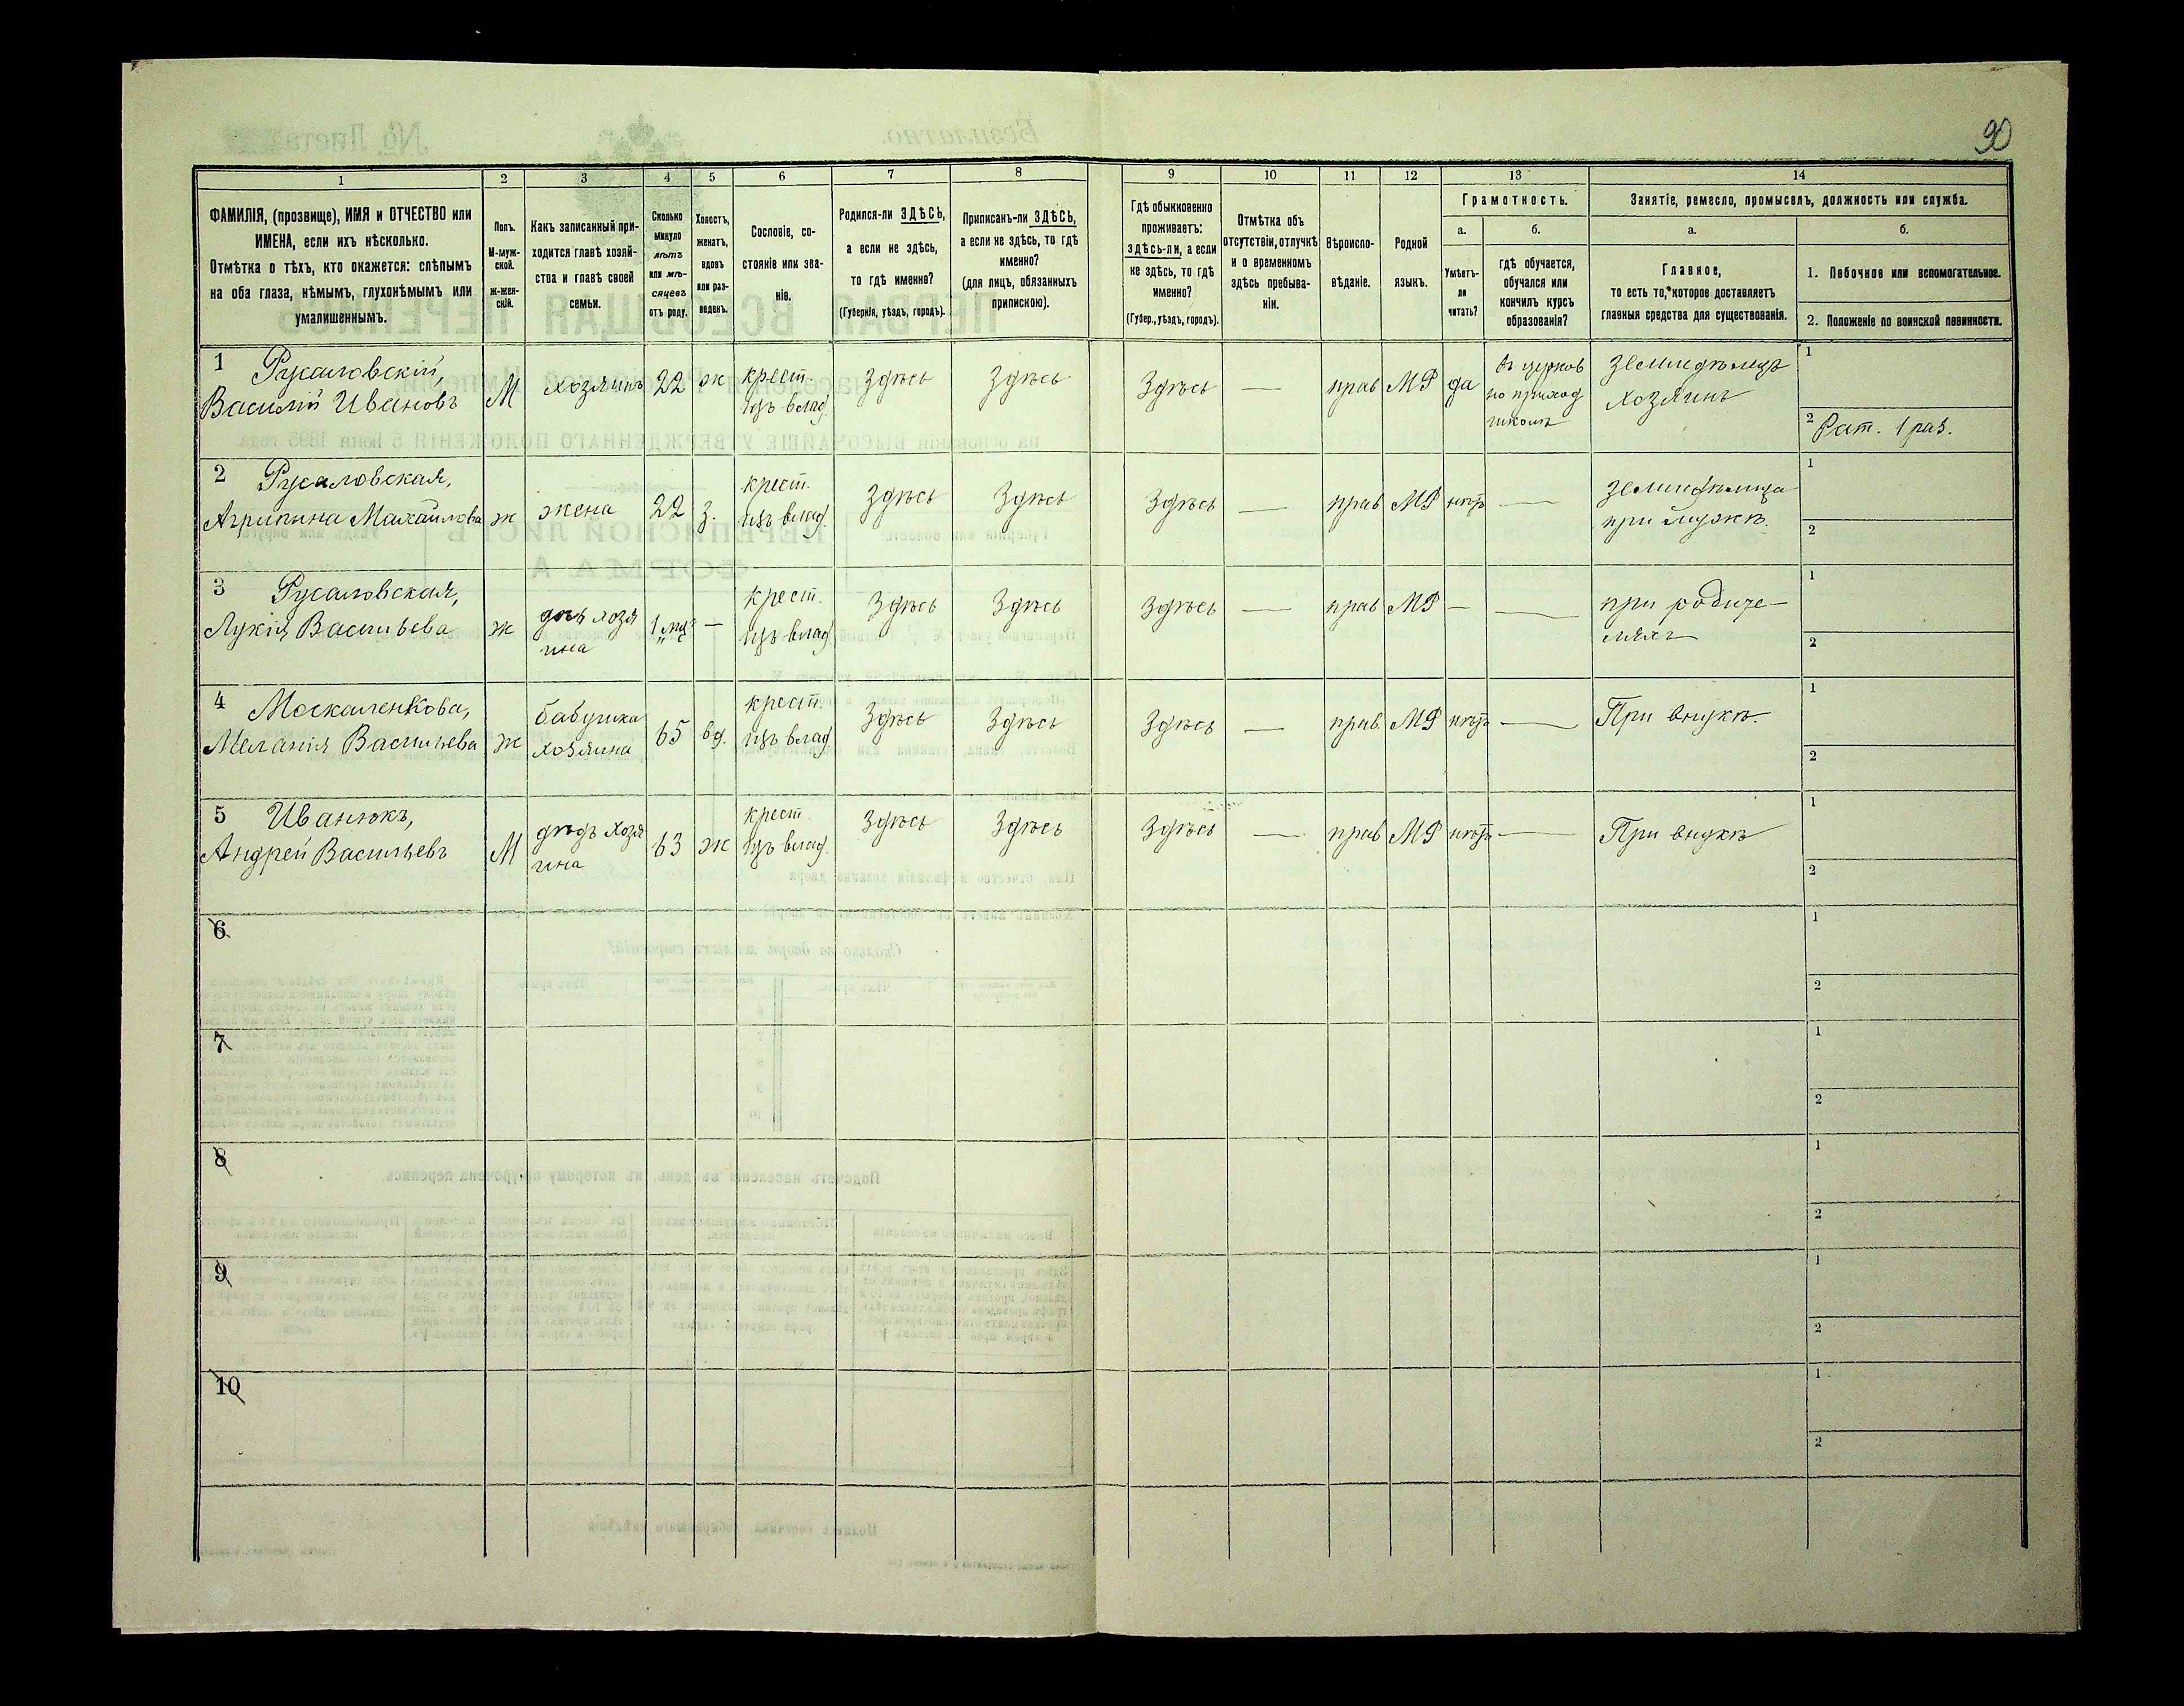 90
1 2 3 4 5 6 7 8 9 10 11 12 13 14
ФАМИЛІЯ, (прозвище), ИМЯ и ОТЧЕСТВО или
ИМЕНА, если ихъ нѣсколько.
Отмѣтка о тѣхъ, кто окажется: слѣпымъ
на оба глаза, нѣмымъ, глухонѣмымъ или
умалишеннымъ.
Полъ.
М-муж-
ской.
ж-жен-
скій.
Какъ записанный при-
ходится главѣ хозяй-
ства и главѣ своей
семьи.
Сколько
минуло
лѣтъ
или мѣ-
сяцевъ
отъ роду.
Холостъ,
женатъ,
вдовъ
или раз-
веденъ.
Сословіе, со-
стояніе или зва-
ніе.
Родился-ли ЗДѢСЬ,
а если не здѣсь,
то гдѣ именно?
(Губернія, уѣздъ, городъ).
Приписанъ-ли ЗДѢСЬ,
а если не здѣсь, то гдѣ
именно?
(для лицъ, обязанныхъ
припискою).
Гдѣ обыкновенно
проживаетъ:
здѣсь-ли, а если
не здѣсь, то гдѣ
именно?
(Губер., уѣздъ, городъ).
Отмѣтка объ
отсутствіи, отлучкѣ
и о временномъ
здѣсь пребыва-
ніи.
Вѣроиспо-
вѣданіе.
Родной
языкъ.
Грамотность.
а.
Умѣетъ-
ли
читать?
б.
гдѣ обучается,
обучался или
кончилъ курсъ
образованія?
Занятіе, ремесло, промыселъ, должность или служба.
а.
Главное,
то есть то, которое доставляетъ
главныя средства для существованія.
б.
1. Побочное или вспомогательное.
2. Положеніе по воинской повинности.
1 Русаловскій,
Василій Ивановъ
М
хозяинъ
22
ж
крест.
изъ влад.
Здѣсь
Здѣсь
Здѣсь
—
прав
МР
да
въ церков
но приход
школѣ
Земледѣлецъ
хозяинъ
1
2 Рат. 1 раз.
2 Русаловская,
Агрипина Махайлова
ж
жена
22
з.
крест.
изъ влад.
Здѣсь
Здѣсь
Здѣсь
—
прав
МР
нѣтъ
—
Земледѣлица
при мужѣ.
1
2
3 Русаловская,
Лукія Васильева
ж
дочь хозя
ина
1 мц
—
крест.
изъ влад.
Здѣсь
Здѣсь
Здѣсь
—
прав
МР
—
—
при родите-
ляхъ
1
2
4 Москаленкова,
Меланія Васильева
ж
бабушка
хозяина
65
вд.
крест.
изъ влад.
Здѣсь
Здѣсь
Здѣсь
—
прав.
МР
нѣтъ
—
При внукѣ.
1
2
5 Иванюкъ,
Андрей Васильевъ
М
дѣдъ хозя
ина
63
ж
крест.
изъ влад.
Здѣсь
Здѣсь
Здѣсь
—
прав
МР
нѣтъ
—
При внукѣ
1
2
6
1
2
7
1
2
8
1
2
9
1
2
10
1
2